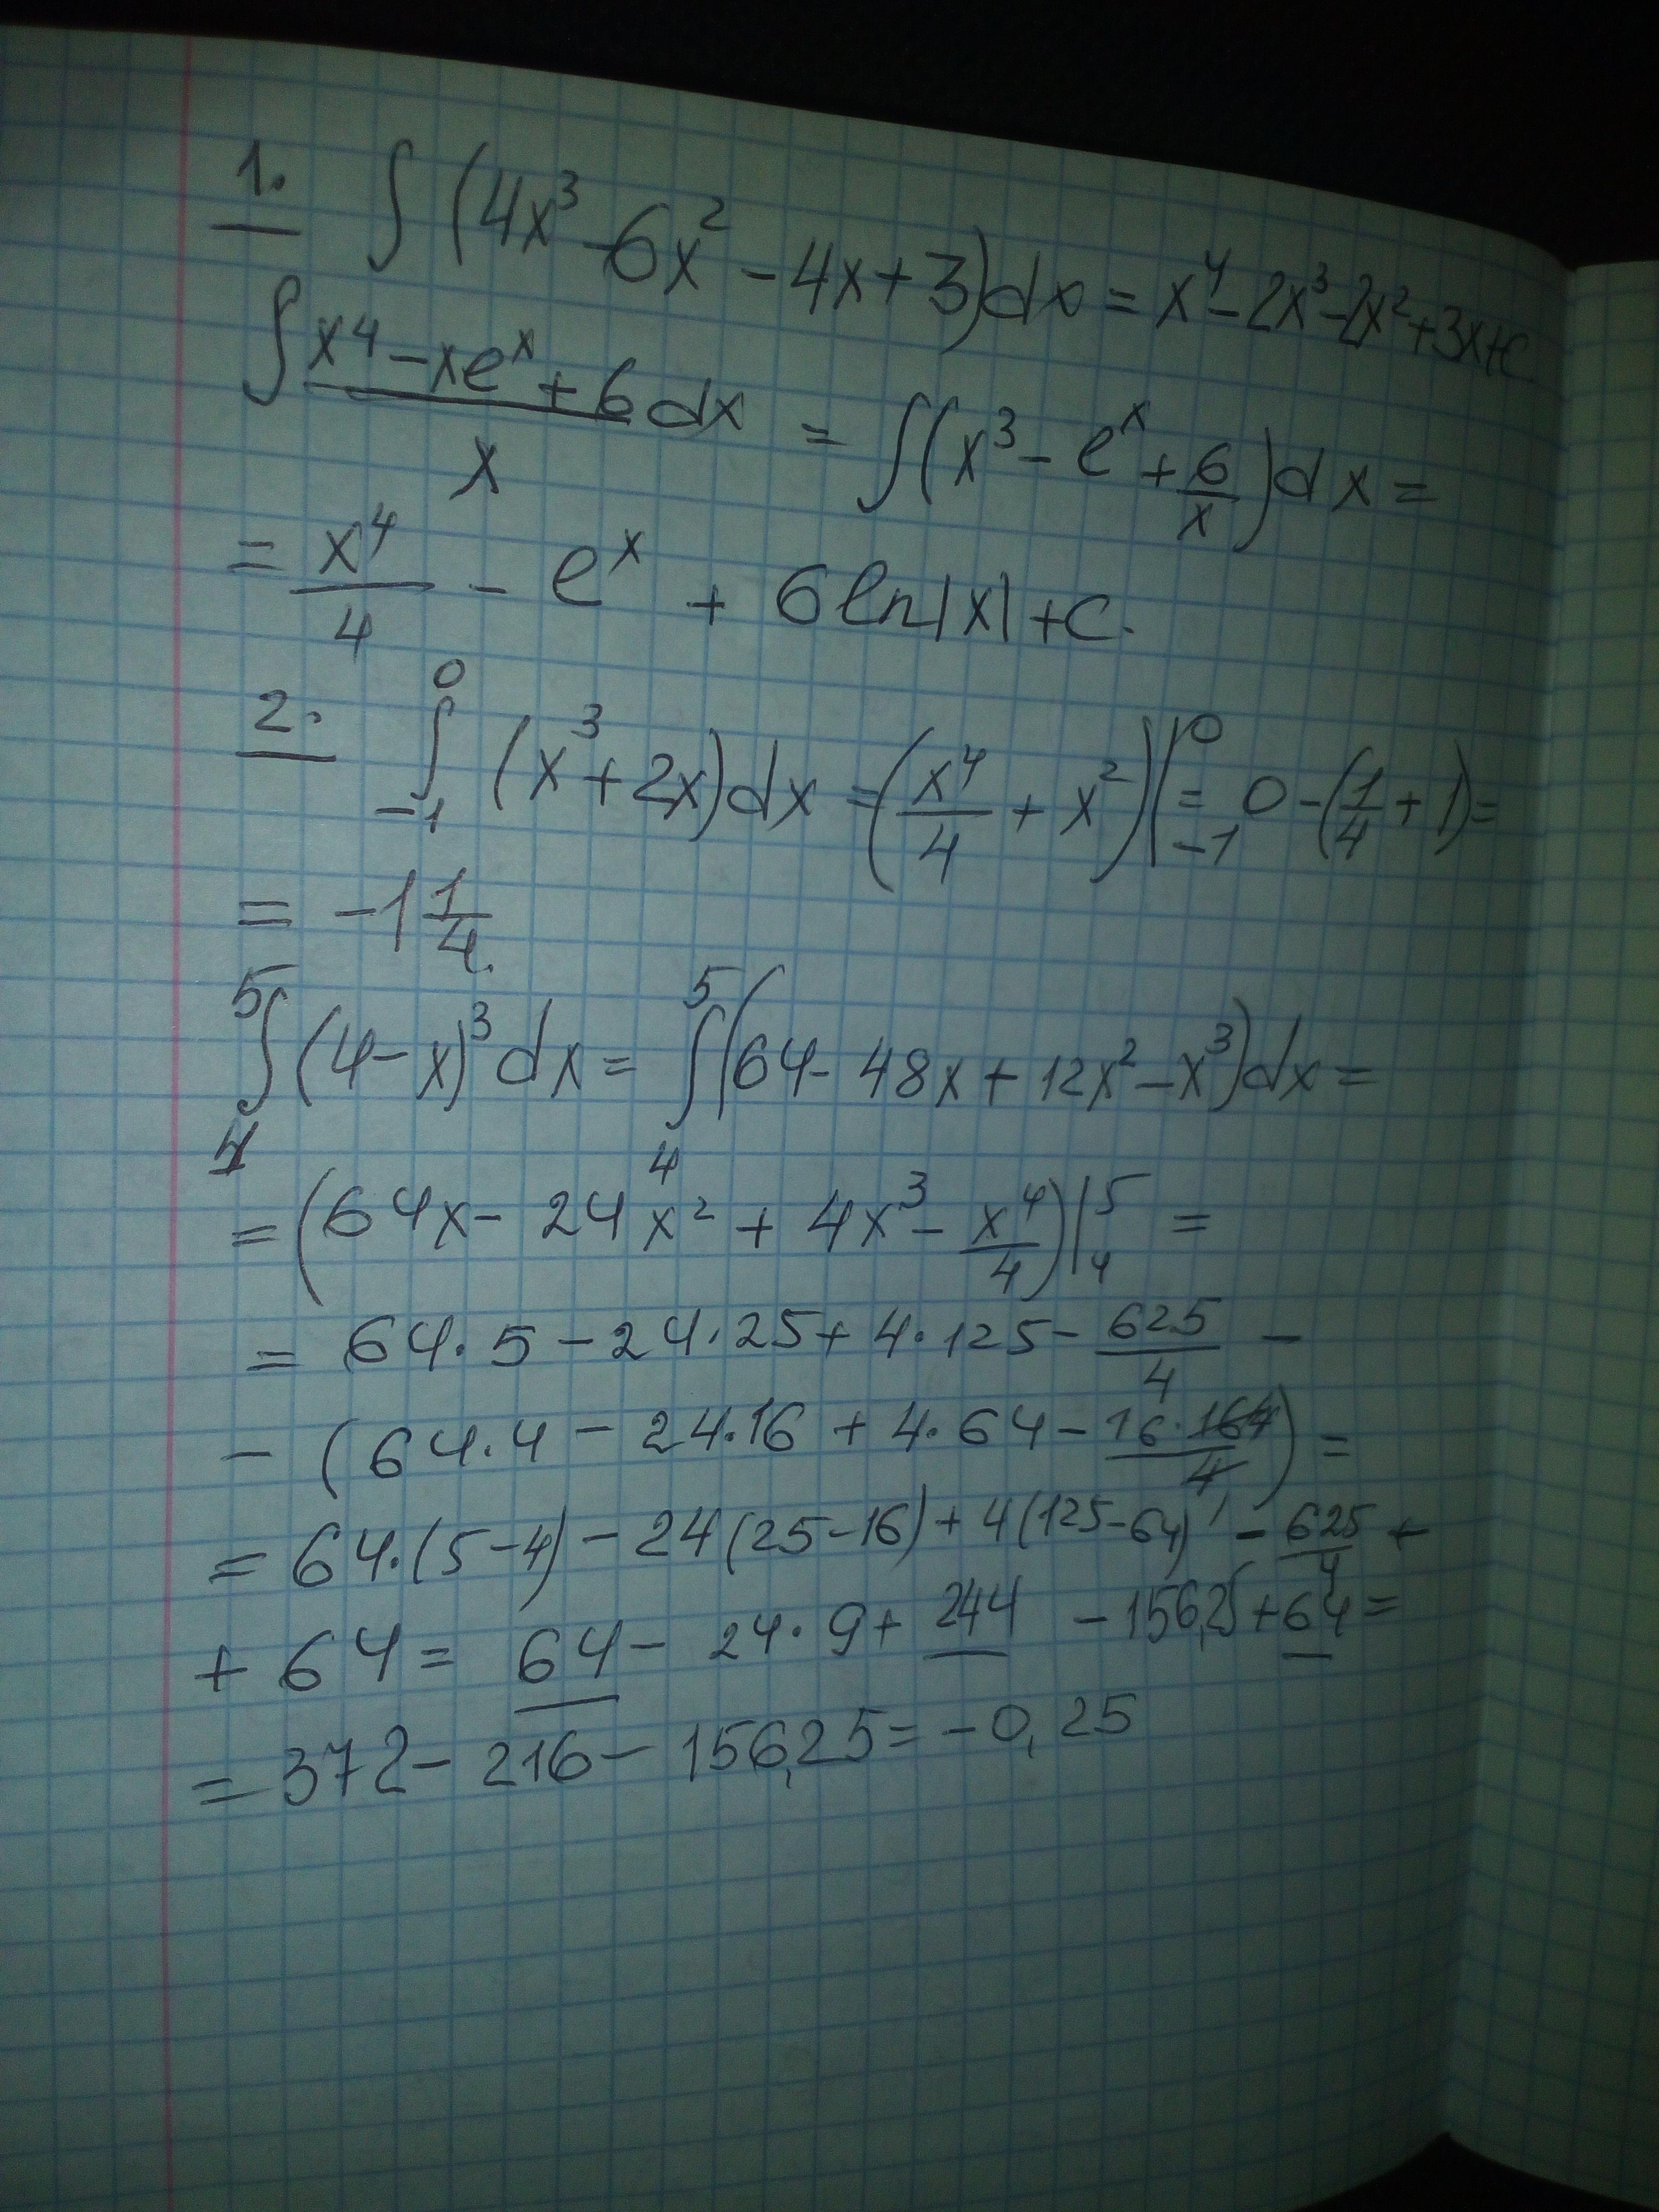 1. ∫(4x³ - 6x² - 4x + 3)dx = x⁴ - 2x³ - 2x² + 3x + c
∫ (x⁴ - xeˣ + 6)/x dx = ∫(x³ - eˣ + 6/x)dx =
= x⁴/4 - eˣ + 6ln|x| + c.
2. ∫₋₁⁰ (x³ + 2x)dx = (x⁴/4 + x²)|₋₁⁰ = 0 - (1/4 + 1) =
= -1 1/4.
∫₄⁵ (4 - x)³dx = ∫₄⁵ (64 - 48x + 12x² - x³)dx =
= (64x - 24x² + 4x³ - x⁴/4)|₄⁵ =
= 64·5 - 24·25 + 4·125 - 625/4 -
- (64·4 - 24·16 + 4·64 - 16·164/4) =
= 64·(5-4) - 24(25-16) + 4(125-64) - 625/4 +
+ 64 = 64 - 24·9 + 244 - 156,25 + 64 =
= 372 - 216 - 156,25 = -0,25